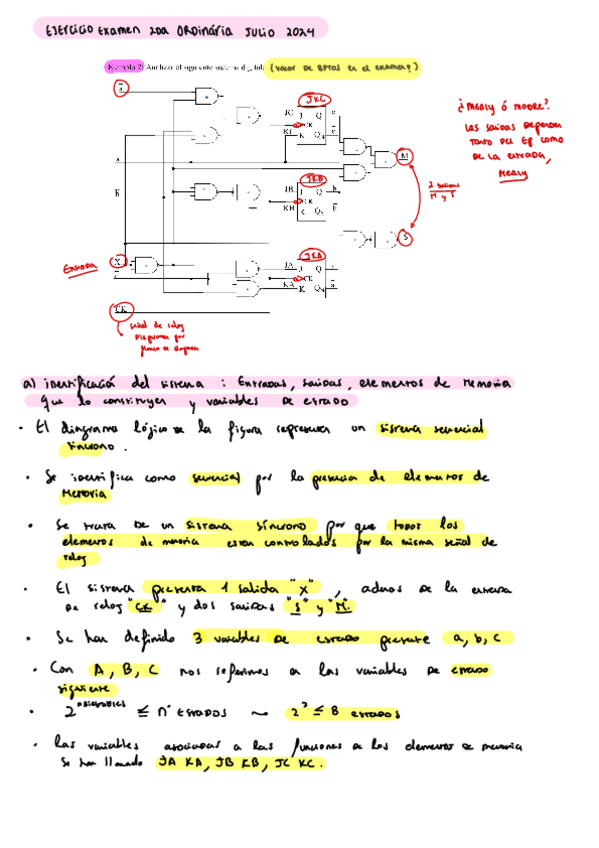 EJERCICIO EXAMEN 2DA ORDINARIA JULIO 2024
Ejemplo 2: Analizar el siguiente (VALOR DE 8PTOS EN EL EXAMEN)
¿MEALY ó MOORE?
Las salidas dependen
tanto del Eº como
de la entrada,
MEALY
JKC
JC
J Q c
CK
KC
K
a
M
2 salidas
M y S
b
JKB
JB
J Q b
CK
KB
K
S
Entrada
X
JKA
JA
J Q a
CK
KA
K
CK
señal de reloj
a) identificació del sistema : Entradas, salidas, elementos de memoria
que lo constituyen y variables de estado
· El diagrama lógico de la figura representa un sistema secuencial
síncrono.
· Se identifica como secuencial por la presencia de elementos de
memoria
· Se trata de un sistema síncrono por que todos los
elementos de memoria estan controlados por la misma señal de
reloj
· El sistema presenta 1 salida "X", ademas de la entrada
de reloj "CK" y dos salidas "S" y "M".
· Se han definido 3 variables de estado presente a, b, c
· Con A, B, C nos referimos a las variables de estado
siguiente
· ≤ nº ESTADOS ~ 2³ ≤ 8 estados
· Las variables asociadas a las funciones de los elementos de memoria
se han llamado JA KA, JB KB, JC KC.